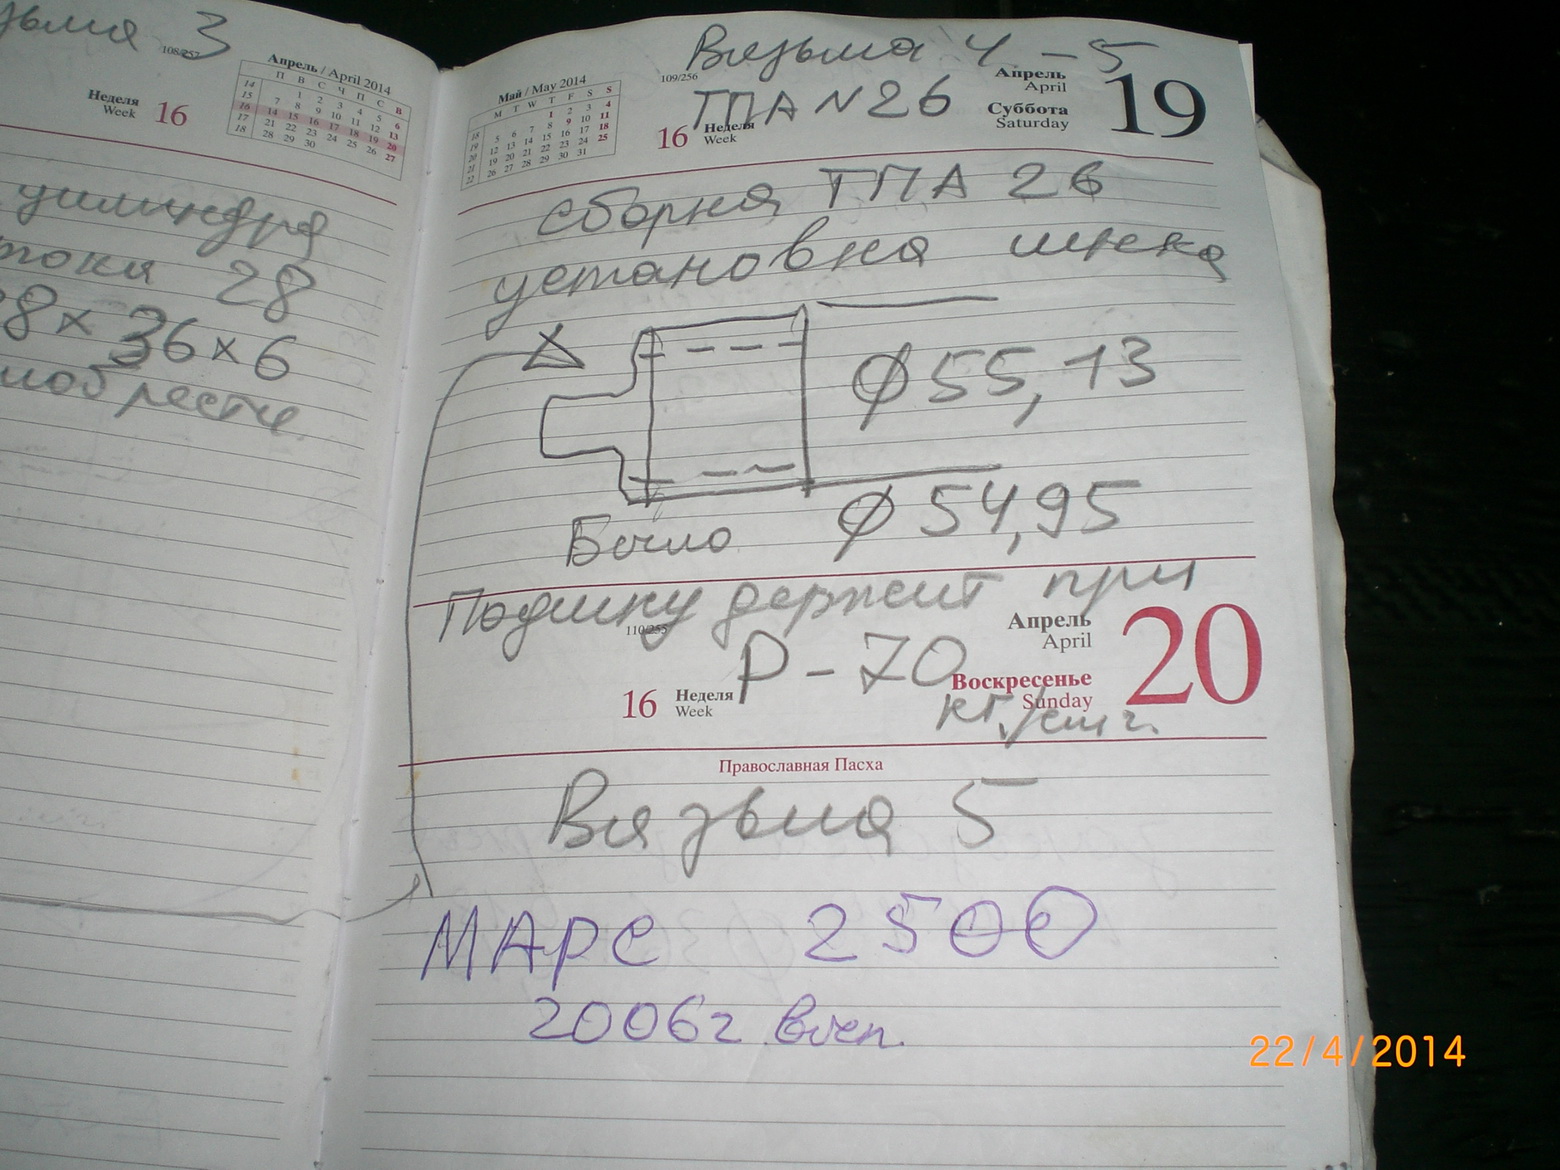 зьма 3
108/257
Апрель / April 2014
П В С Ч П С В
14 1 2 3 4 5 6
15 7 8 9 10 11 12 13
16 14 15 16 17 18 19 20
17 21 22 23 24 25 26 27
18 28 29 30
Неделя
Week
16
цилиндра
штока 28
28 x 36 x 6
Вязьма 4 - 5
ТПА N 26
109/256
Май / May 2014
M T W T F S S
18 1 2 3 4
19 5 6 7 8 9 10 11
20 12 13 14 15 16 17 18
21 19 20 21 22 23 24 25
22 26 27 28 29 30 31
16
Неделя
Week
Апрель
April
Суббота
Saturday
19
сборка ТПА 26
установка шнека
Ø 55,13
Было Ø 54,95
Подушку держит при
P - 70
кг/см2.
110/255
16
Неделя
Week
Апрель
April
Воскресенье
Sunday
20
Православная Пасха
Вязьма 5
МАРС 2500
2006г вып.
22/4/2014